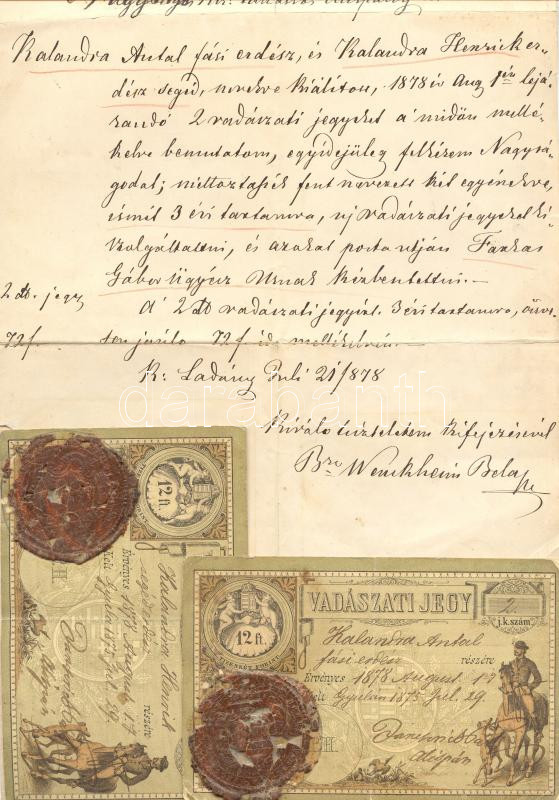 Kalandra Antal fási erdész, és Kalandra Henrick er-
dész seged, nevekre kiálitott, 1878 év Aug 1én lejá-
randó 2 vadászati jegyeket a' midőn mellé-
kelve bemutatom, egyidejüleg felkérem Nagysá-
godat; méltoztassék fent nevezett két egyénekre,
ismét 3 évi tartamra, uj vadászati jegyeket ki
szolgáltattni, és azokat posta utján Farkas
Gábor Ügyész Urnak kézbentettni.-
2 db. jegy
A' 2 db vadászati jegyért 3 évi tartamra,
72 f. 72 f ide mellékelvén.-
K: Ladány Juli 21/878
Kiváló tiszteletem kifejezésével
Br. Wenckheim Bela
darabanth
12 ft.
Kalandra Henrick
részére
Érvényes 1878 August 1
Kelt Gyulán 1875
Alispán
12 ft.
TIZENKÉT FORINT
VADÁSZATI JEGY
2
j.k.szám
Kalandra Antal
fási erdész részére
Érvényes 1878 August 1
Kelt Gyulán 1875 Jul. 29
Alispán